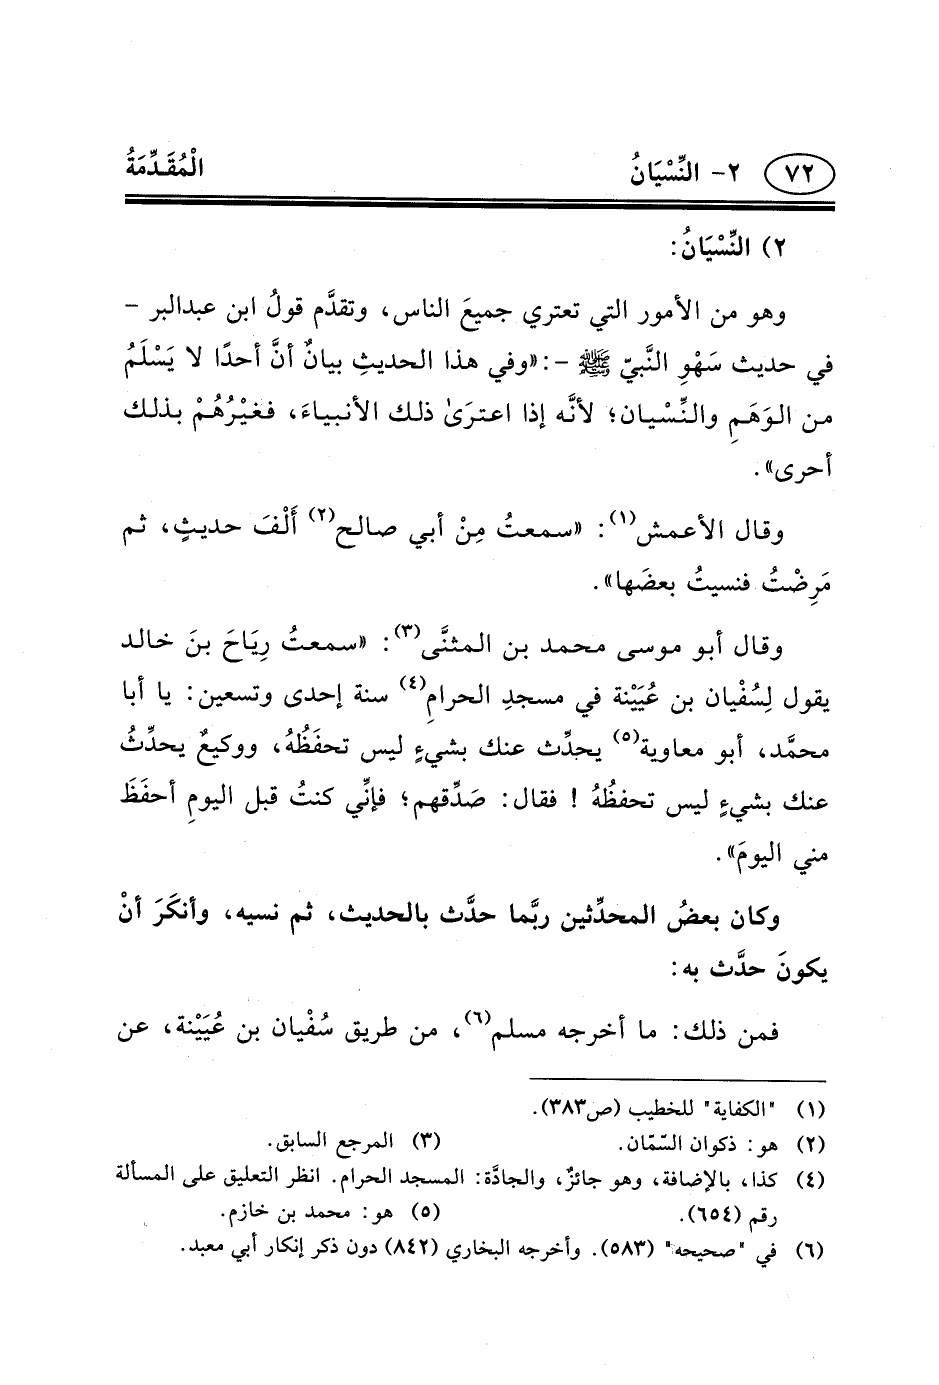 ٧٢ ٢- النِّسْيَانُ الْمُقَدِّمَةُ
٢) النِّسْيَانُ:
وهو من الأمور التي تعتري جميعَ الناس، وتقدَّم قولُ ابن عبدالبر –
في حديث سَهْوِ النَّبيِّ ﷺ -: «وفي هذا الحديثِ بيانٌ أنَّ أحدًا لا يَسْلَمُ
من الوَهَمِ والنِّسْيان؛ لأنَّه إذا اعترَىٰ ذلك الأنبياءَ، فغَيْرُهُمْ بذلك
أحرى».
وقال الأعمش(١): «سمعتُ مِنْ أبي صالح(٢) أَلْفَ حديثٍ، ثم
مَرِضْتُ فنسيتُ بعضَها».
وقال أبو موسى محمد بن المثنَّى(٣): «سمعتُ رِيَاحَ بنَ خالد
يقول لِسُفْيان بن عُيَيْنة في مسجدِ الحرامِ(٤) سنة إحدى وتسعين: يا أبا
محمَّد، أبو معاوية(٥) يحدِّث عنك بشيءٍ ليس تحفَظُهُ، ووكيعٌ يحدِّثُ
عنك بشيءٍ ليس تحفظُهُ ! فقال: صَدِّقهم؛ فإنِّي كنتُ قبل اليومِ أحفَظَ
مني اليومَ».
وكان بعضُ المحدِّثين ربَّما حدَّث بالحديث، ثم نسيه، وأنكَرَ أنْ
يكونَ حدَّث به:
فمن ذلك: ما أخرجه مسلم(٦)، من طريق سُفْيان بن عُيَيْنة، عن
(١) "الكفاية" للخطيب (ص٣٨٣).
(٢) هو: ذكوان السّمّان. (٣) المرجع السابق.
(٤) كذا، بالإضافة، وهو جائزٌ، والجادَّة: المسجد الحرام. انظر التعليق على المسألة
رقم (٦٥٤). (٥) هو: محمد بن خازم.
(٦) في "صحيحه" (٥٨٣). وأخرجه البخاري (٨٤٢) دون ذكر إنكار أبي معبد.